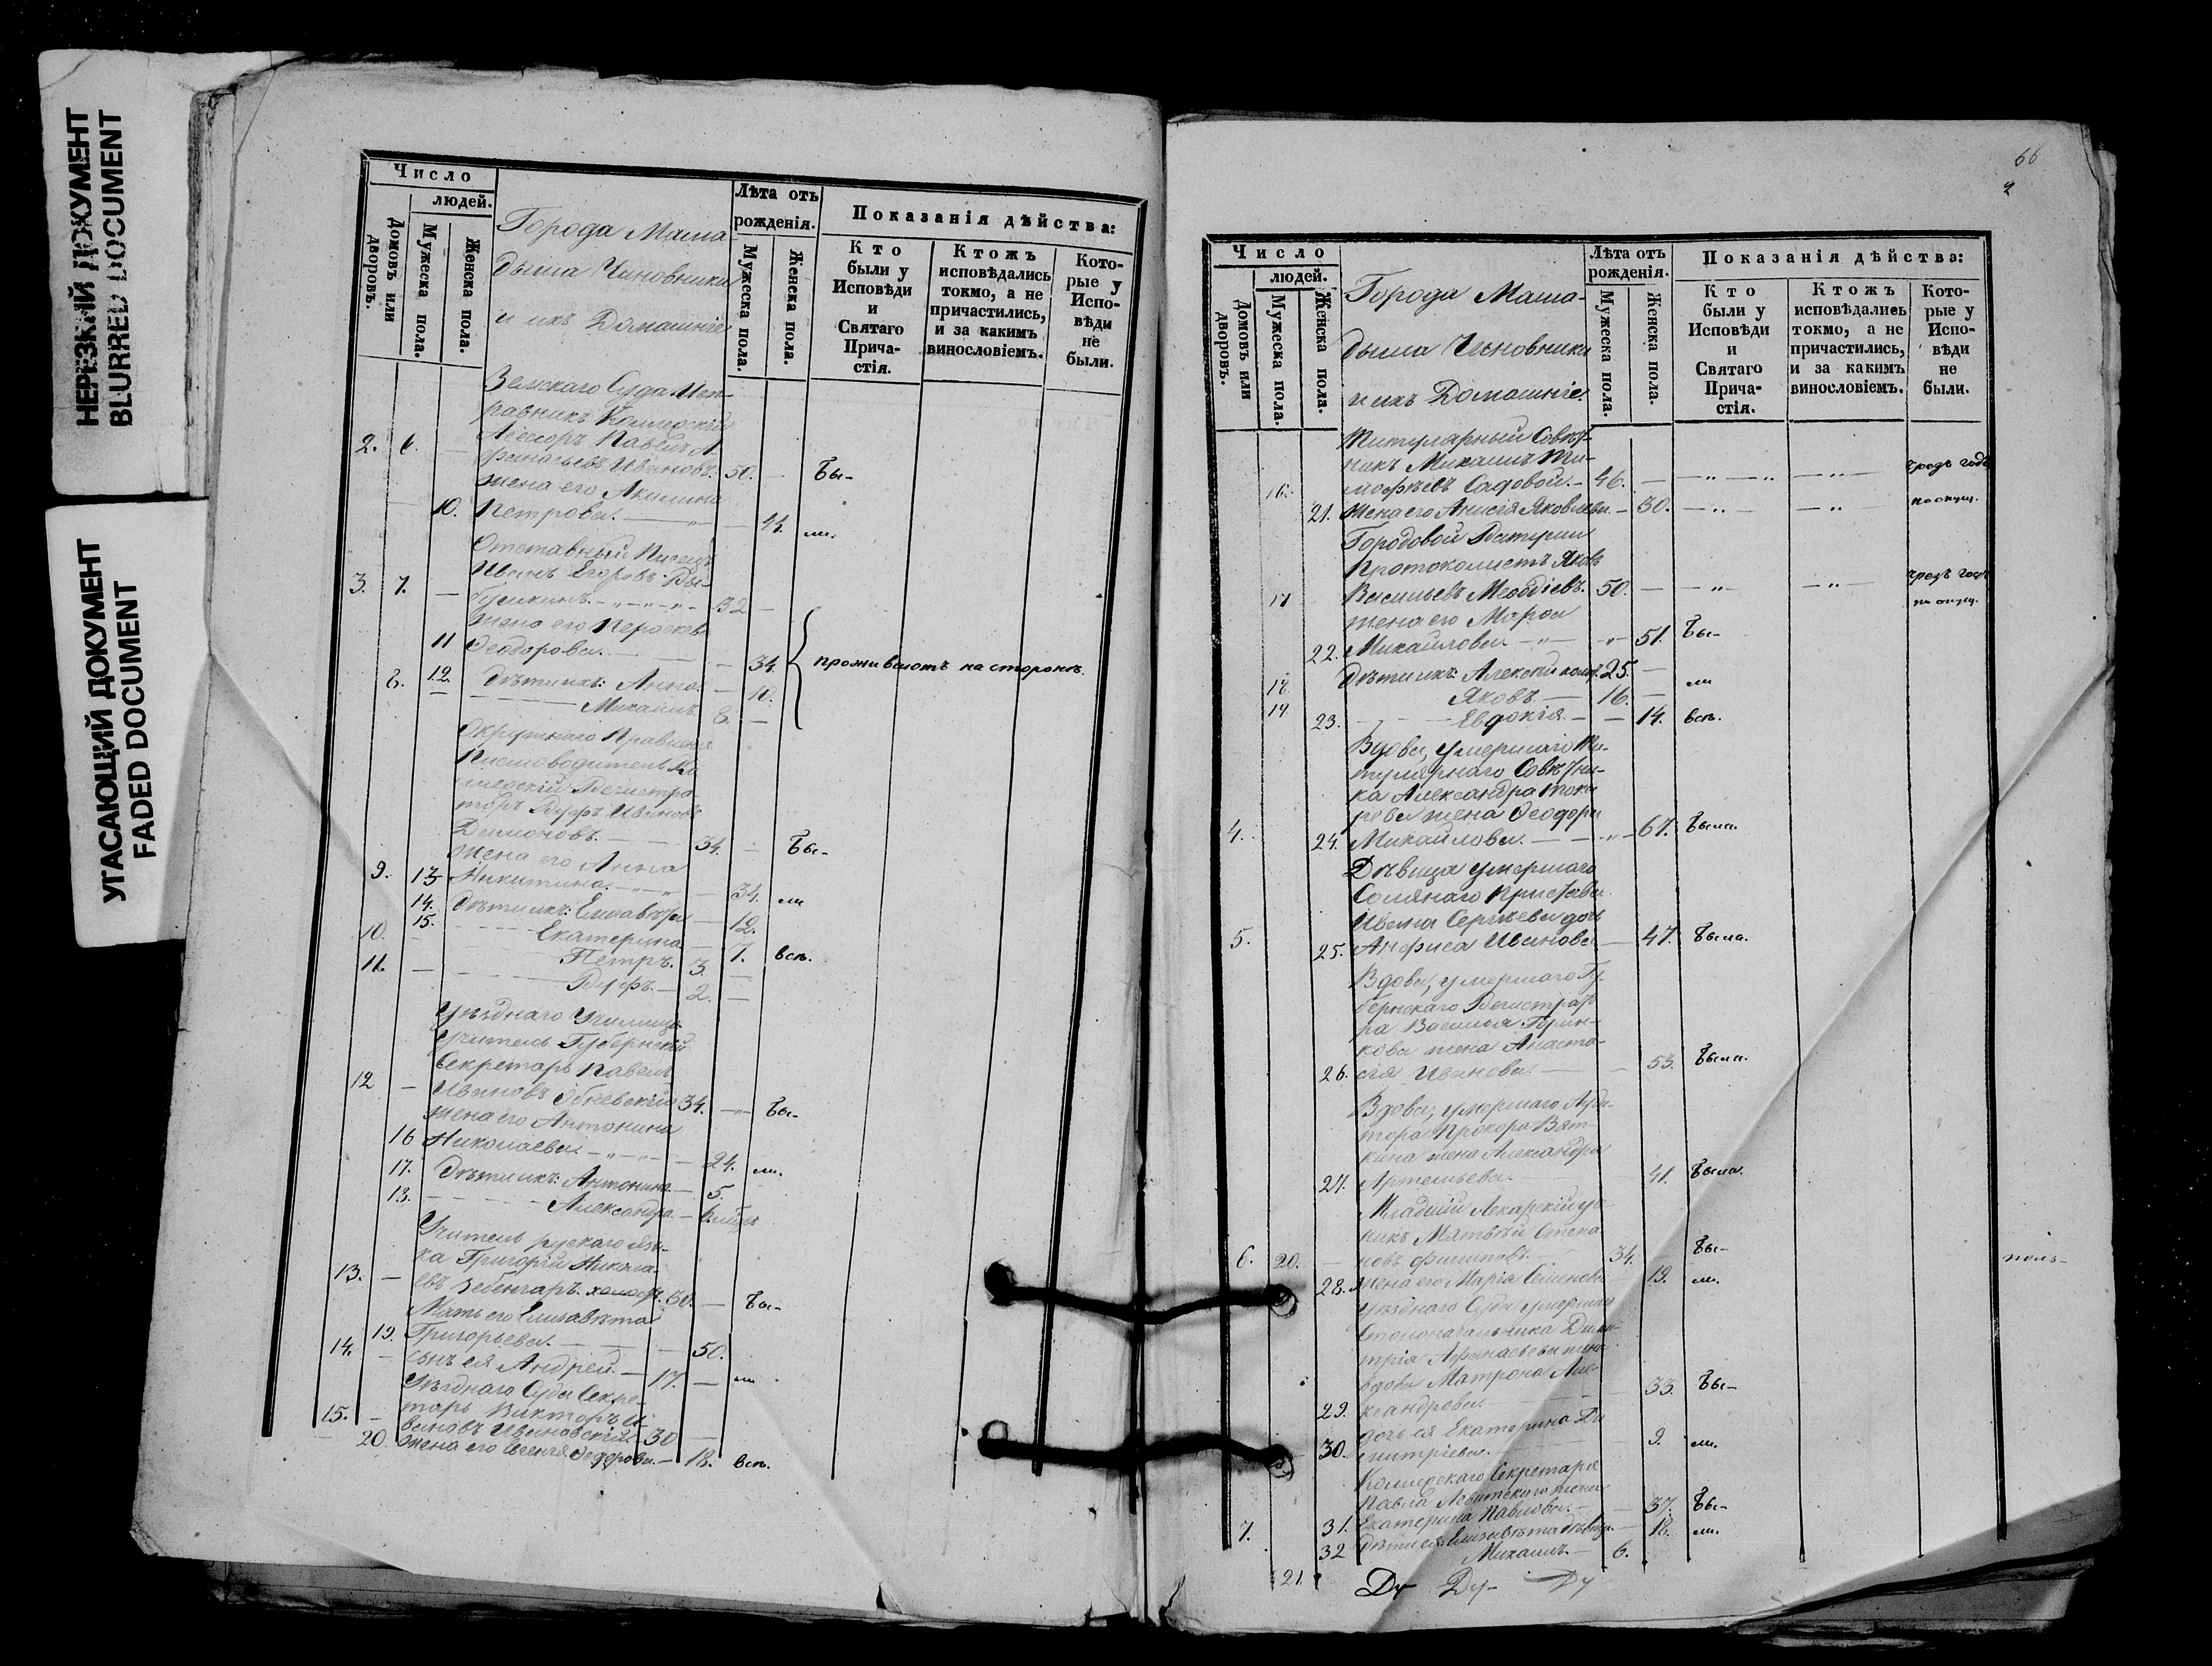 НЕРЕЗКИЙ ДОКУМЕНТ
BLURRED DOCUMENT
УГАСАЮЩИЙ ДОКУМЕНТ
FADED DOCUMENT
Число
людей.
Домовъ или дворовъ.
Мужеска пола.
Женска пола.
Города Мама-
дыша Чиновники
и ихъ Домашніе
Лѣта отъ рожденія.
Мужеска пола.
Женска пола.
Показанія дѣйства:
Кто были у Исповѣди и Святаго Прича-стія.
Ктожъ исповѣдались токмо, а не причастились, и за какимъ винословіемъ.
Кото-рые у Испо-вѣди не были.
Земскаго Суда Исп-
равникъ Коллежскій
Ассесоръ Павелъ А-
2. 6. — фанасьевъ Ивановъ. 50. — Бы-
жена его Акилина
10. Петрова. — 44. ли.
Отставный Писецъ
Иванъ Егоровъ
3. 7. — 32 —
жена его Параскева
11 Феодорова. — 34
проживаютъ на сторонѣ.
12. Дѣти ихъ: Анна. — 10.
8. — Михаилъ 8. —
Окружнаго Правленія
Писмоводитель Ко-
лежскій Регистра-
торъ Руфъ Ивановъ
9. — 34. — Бы-
жена его Анна
13 Никитина. — 34. ли
14. Дѣти ихъ: Елисавета — 12.
15. Екатерина — 7. всѣ.
10. Петръ. 3. —
11. — Руфъ. — 2. —
Уѣзднаго Училища
Учитель Губернскій
Секретарь Павелъ
12 — Ивановъ 34. — Бы-
жена его Антонина
16 Николаева. — 24. ли.
17. Дѣти ихъ: Антонина — 5.
18. Александра. —
Учитель рускаго язы-
ка Григорій Никола-
13. — евъ холостъ. — Бы-
Мать его Елисавета
19. Григорьева. — 50.
14. — сынъ ея Андрей. — 17. — ли
Уѣзднаго Суда Секре-
тарь Викторъ И-
15. — вановъ Ивановскій. 30 —
20. жена его Евгенія Федорова. — 18. всѣ.
66
2
Число
людей.
Домовъ или дворовъ.
Мужеска пола.
Женска пола.
Города Мама-
дыша Чиновники
и ихъ Домашніе.
Лѣта отъ рожденія.
Мужеска пола.
Женска пола.
Показанія дѣйства:
Кто были у Исповѣди и Святаго Прича-стія.
Ктожъ исповѣдались токмо, а не причастились, и за какимъ винословіемъ.
Кото-рые у Испо-вѣди не были.
Титулярный Совѣт-
никъ Михаилъ Ти-
16. мофѣевъ Садовой. — 46. — чрезъ годъ
21. жена его Анисія Яковлева. — 30. — по опущ.
Городовой Ратуши
Протоколистъ Яковъ
17 Васильевъ Меѳодіевъ. 50. — чрезъ годъ
по опущ.
жена его Марѳа
22. Михайлова. — 51. Бы-
18. Дѣти ихъ: Алексѣй холост. 25. — ли
19 Яковъ. — 16. —
23. Евдокія. — 14. всѣ.
Вдова, умершаго Ти-
тулярнаго Совѣтни-
ка Александра Тока
рева жена Феодора
4. 24. Михайлова. — 67. Была.
Дѣвица умершаго
Солянаго Пристава
Ивана Сергѣева дочь
5. 25. Анфиса Иванова — 47. Была.
Вдова, умершаго Гу-
бернскаго Регистрато
ра Василья
кова жена Анаста-
26. сія Иванова. — 53. Была.
Вдова, умершаго Ауди-
тора Прохора Вят-
кина жена Александра
27. Артемьева. 41. Была.
Младшій Лекарскій уче-
никъ Матвѣй Степа
6. 20. — новъ Филиповъ. 34. — Бы-
28. жена его Марія Семенова — 19. ли.
поль-
Уѣзднаго Суда умершаго
Столоначальника Дими-
трія Афанасьева жена
вдова Матрона Але-
29. ксандрова. 33. Бы-
дочь ея Екатерина Ди
30. митріева. — 9. ли.
Коллежскаго Секретаря
Павла Левитскаго жена
31. Екатерина Павлова. — 37. Бы-
7. 32 Дѣти ея: Елизавета дѣвица. — 18. ли.
21. Михаилъ. — 6.
Ду- Ду- Ду